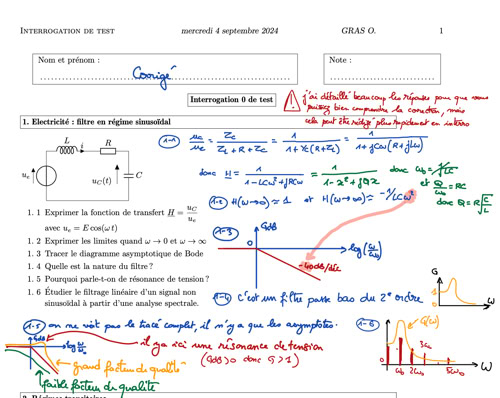 INTERROGATION DE TEST mercredi 4 septembre 2024 GRAS O. 1
Nom et prénom :
Corrigé
Note :
Interrogation 0 de test
j'ai détaillé beaucoup les réponses pour que vous
puissiez bien comprendre la correction, mais
cela peut être rédigé plus rapidement en interro
1. Electricité : filtre en régime sinusoïdal
L R
u_e u_C(t) C
1-1 u_C/u_e = Z_C/(Z_L+R+Z_C) = 1/(1+Y_C(R+Z_L)) = 1/(1+jCω(R+jLω))
donc H = 1/(1-LCω²+jRCω) = 1/(1-x²+jQx) donc ω₀=1/√LC
et Q/ω₀ = RC
donc Q = R√(C/L)
1. 1 Exprimer la fonction de transfert H = u_C/u_e
avec u_e = E cos(ωt)
1. 2 Exprimer les limites quand ω → 0 et ω → ∞
1. 3 Tracer le diagramme asymptotique de Bode
1. 4 Quelle est la nature du filtre ?
1. 5 Pourquoi parle-t-on de résonance de tension ?
1. 6 Étudier le filtrage linéaire d'un signal non
sinusoïdal à partir d'une analyse spectrale.
1-2 H(ω→0) ≈ 1 et H(ω→∞) ≈ -1/LCω²
1-3 GdB
log(ω/ω₀)
-40dB/déc
1-4 C'est un filtre passe bas du 2ᵉ ordre
G
ω
1-5 on ne voit pas le tracé complet, il n'y a que les asymptotes.
log ω/ω₀
il y a ici une résonance de tension
(GdB>0 donc G>1)
grand facteur de qualité
faible facteur de qualité
1-6 G(ω)
ω₀ 2ω₀ 3ω₀ 5ω₀ ω
2. Régimes transitoires